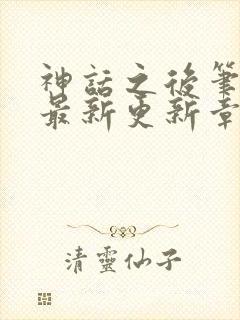 神話之後筆
最新更新章
清靈仙子